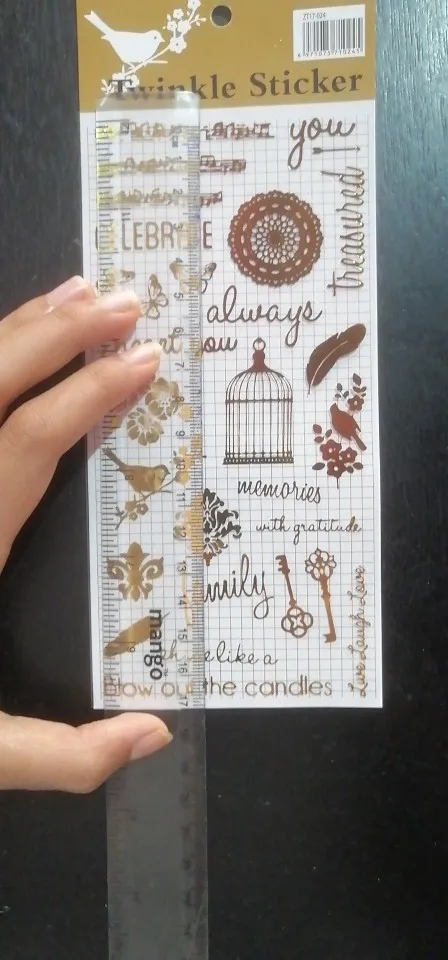 ZT17-024
Twinkle Sticker
you
treasured
CELEBRATE
always
you
memories
with gratitude
family
like a
blow out the candles
Live Laugh Love
mango
1
2
3
4
5
6
7
8
9
10
11
12
13
14
15
16
17